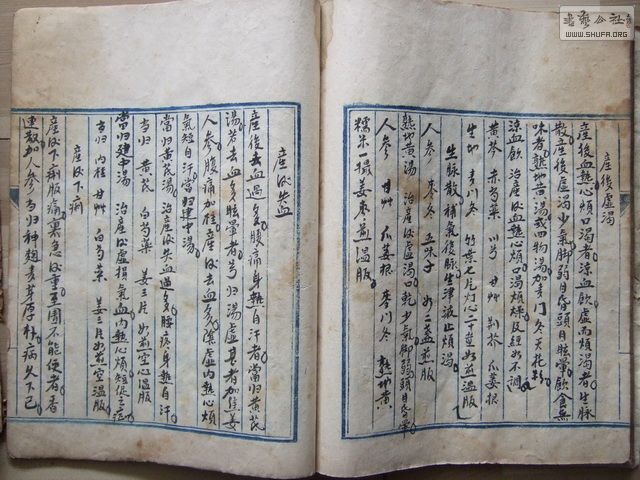 產後虛渴
產後血熱心煩口渴者涼血飲虛而煩渴者生脈
散產後虛渴少氣脚弱目昏頭目眩暈飲食無
味者熟地黃湯或四物湯加麦门冬天花粉
涼血飲 治產後血熱心煩口渴煩燥及經水不調
黃芩 赤芍藥 川芎 甘艸 荆芥 瓜蒌根
生地 麦门冬 竹葉七片灯心二十莖水煎溫服
生脈散 補氣復脈生津液止煩渴
人參 麥冬 五味子 水二盏煎服
熟地黃湯 治產後虛渴口乾少氣脚弱頭目昏暈
人參 甘艸 瓜蒌根 麦门冬 熟地黃
糯米一撮姜枣煎溫服
產後失血
產後去血過多腹痛身熱自汗者當归黃芪
湯若去血多眩暈者芎归湯虛甚者加焦姜
人參腹痛加桂產後去血多虛內熱心煩
氣短自汗當归建中湯
當归黃芪湯 治產後失血過多腰疼身熱自汗
當归 黃芪 白芍藥 姜三片水煎空心溫服
當归建中湯 治產後虛損氣血內熱心煩短促自痃
當归 肉桂 甘艸 白芍藥 姜三片水煎空溫服
產後下痢
產後下痢腹痛裏急後重至圊不能便者香
連散加人參當归神麯麦芽厚朴病久下已
書藝公社
WWW.SHUFA.ORG